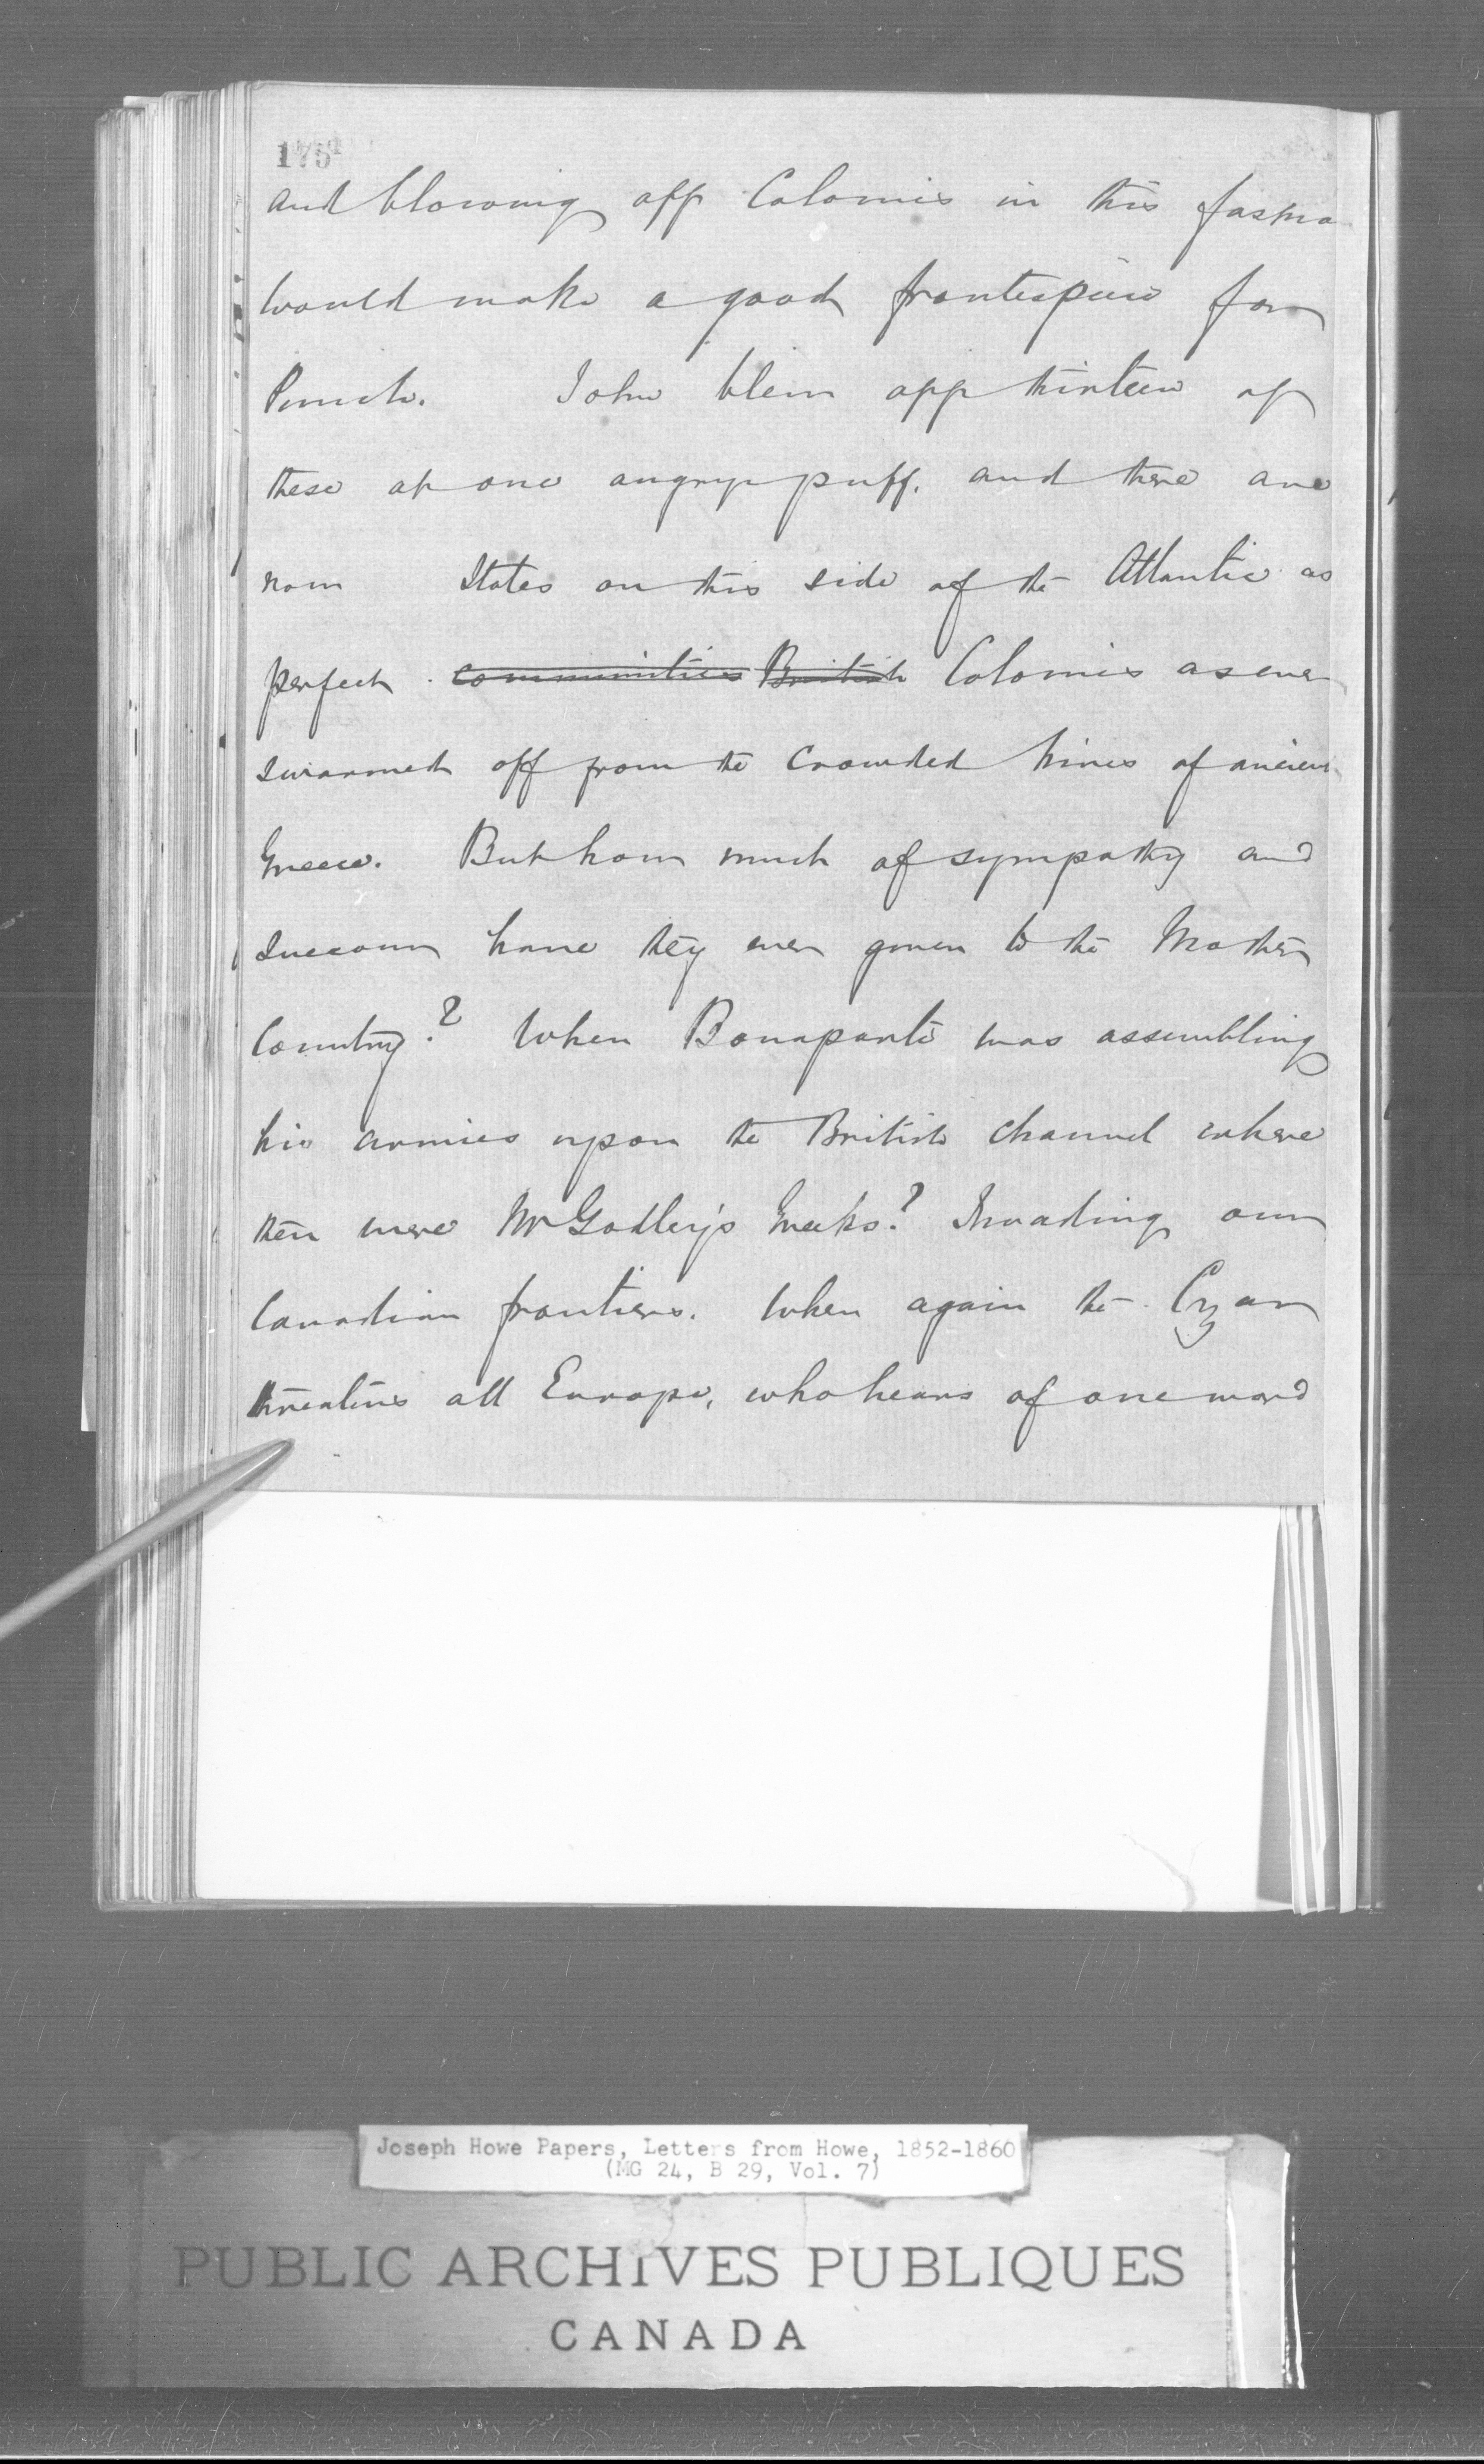 175
and blowing off Colonies in this fashio
would make a good frontispiece for
Punch. John blew off thirteen of
these at one angry puff, and there are
now States on this side of the Atlantic as
perfect communities British Colonies as ever
swarmed off from the crowded hives of ancient
Greece. But how much of sympathy and
succour have they ever given to the Mother
Country? When Bonaparte was assembling
his armies upon the British channel where
then were Mr Godley's Greeks? Invading our
Canadian frontiers. When again the Czar
threatens all Europe, who hears of one word
Joseph Howe Papers, Letters from Howe, 1852-1860
(MG 24, B 29, Vol. 7)
PUBLIC ARCHIVES PUBLIQUES
CANADA